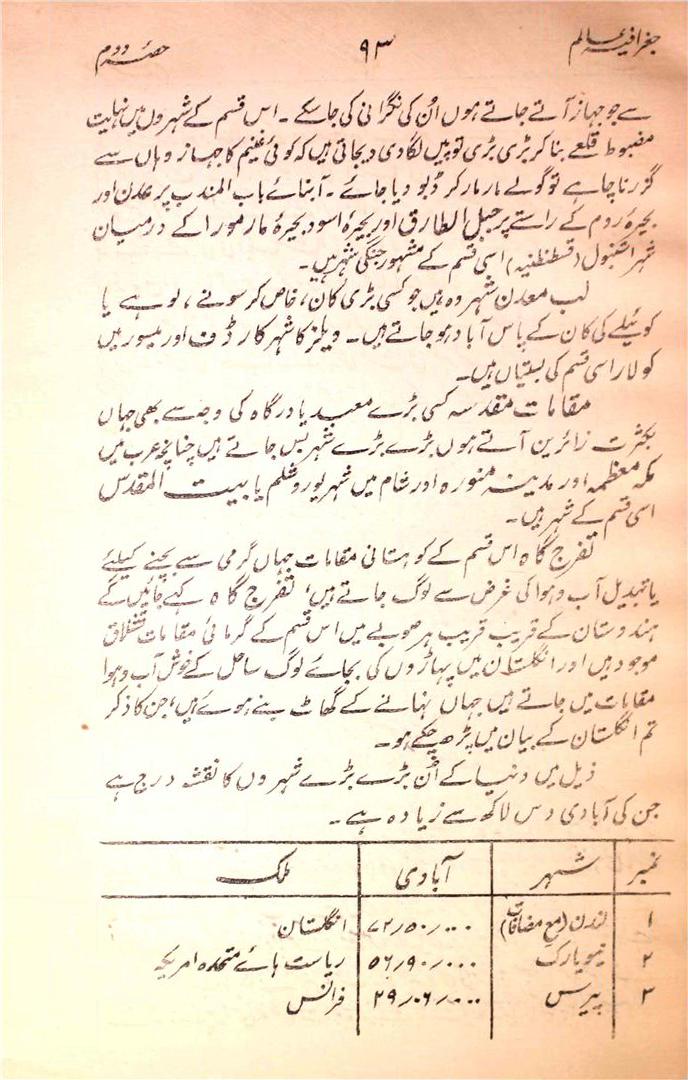 جغرافیہ عالم ۹۳ حصہ دوم
سے جو جہاز آتے جاتے ہوں اُن کی نگرانی کی جاسکے ۔ اس قسم کے شہروں میں نہایت
مضبوط قلعے بنا کر بڑی بڑی توپیں لگا دی جاتی ہیں کہ کوئی غنیم کا جہاز وہاں سے
گزرنا چاہے تو گولے مار مار کر ڈبو دیا جائے ۔ آبنائے باب المندب پر عدن اور
بحیرۂ روم کے راستے پر جبل الطارق اور بحیرۂ اسود بحیرۂ مارمورا کے درمیان
شہر استنبول (قسطنطنیہ) اسی قسم کے مشہور جنگی شہر ہیں ۔
لب معدن شہر وہ ہیں جو کسی بڑی کان، خاص کر سونے ، لوہے یا
کوئیلے کی کان کے پاس آباد ہو جاتے ہیں ۔ ویلز کا شہر کارڈف اور میسور میں
کولار اسی قسم کی بستیاں ہیں ۔
مقامات مقدسہ کسی بڑے معبد یا درگاہ کی وجہ سے بھی جہاں
بکثرت زائرین آتے ہوں بڑے بڑے شہر بس جاتے ہیں چنانچہ عرب میں
مکہ معظمہ اور مدینہ منورہ اور شام میں شہر یوروشلم یا بیت المقدس
اسی قسم کے شہر ہیں ۔
تفرج گاہ اس قسم کے کوہستانی مقامات جہاں گرمی سے بچنے کیلئے
یا تبدیل آب و ہوا کی غرض سے لوگ جاتے ہیں، تفرج گاہ کہے جائیں گے
ہندوستان کے قریب قریب ہر صوبے میں اس قسم کے گرمائی مقامات
موجود ہیں اور انگلستان میں پہاڑوں کی بجائے لوگ ساحل کے خوش آب و ہوا
مقامات میں جاتے ہیں جہاں نہانے کے گھاٹ بنے ہوئے ہیں، جن کا ذکر
تم انگلستان کے بیان میں پڑھ چکے ہو ۔
ذیل میں دنیا کے اُن بڑے بڑے شہروں کا نقشہ درج ہے
جن کی آبادی دس لاکھ سے زیادہ ہے ۔
نمبر شہر آبادی ملک
۱ لندن (مع مضافات) ۷۲٫۵۰٫۰۰۰ انگلستان
۲ نیویارک ۵۶٫۹۰٫۰۰۰ ریاست ہائے متحدہ امریکہ
۳ پیرس ۲۹٫۰۶٫۰۰۰ فرانس